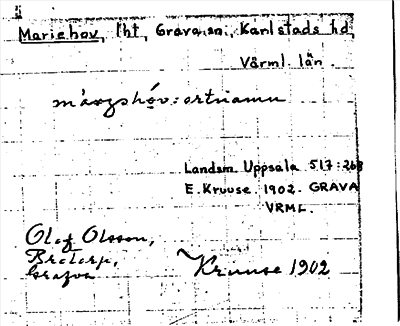 Mariehov, lht, Grava sn, Karlstads hd,
Värml. län.
Landsm. Uppsala 517:268
E. Kruuse 1902. GRAVA
VRML.
Olof Olsson,
Kruuse 1902